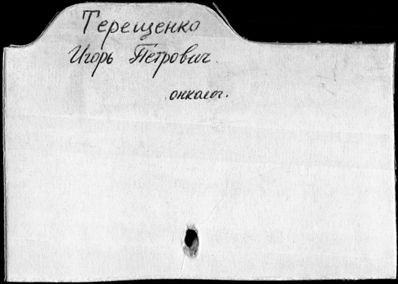 Терещенко
Игорь Петрович.
онколог.